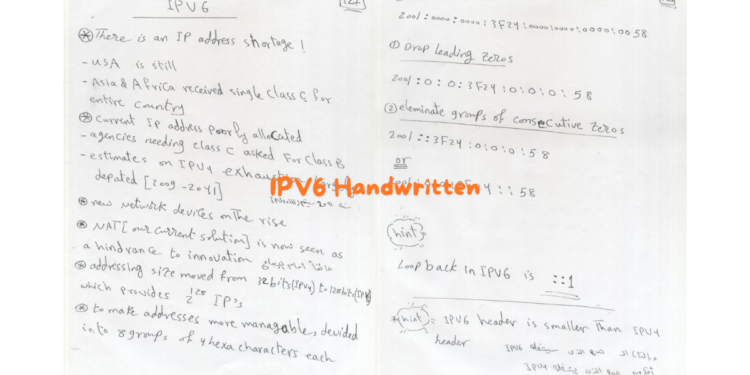 IPV6
⊛ There is an IP address shortage!
- USA is still
- Asia & Africa received single class C for
entire country
⊛ current IP address poorly allocated
- agencies needing class C asked For class B
- estimates on IPV4
depated [2009 - 2041]
⊛ new network devices on The rise
⊛ NAT [our current solution] is now seen as
a hindrance to innovation
⊛ addressing size moved from 32bits(IPV4) to 128bits(IPV6)
which provides 2^128 IP's
⊛ to make addresses more managable, devided
into 8 groups of 4 hexa characters each
IPV6 Handwritten
2001:0000:0000:3F24:0000:0000:0000:0058
① Drop leading Zeros
2001:0:0:3F24:0:0:0:58
② eleminate groups of consecutive zeros
2001::3F24:0:0:0:58
or
::58
hint
Loop back in IPV6 is ::1
hint: IPV6 header is smaller Than IPV4
header